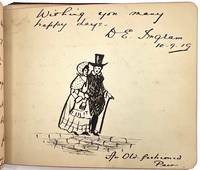 Wishing you many
happy days.
D. E. Ingram
10-9-19
An Old fashioned
Pair